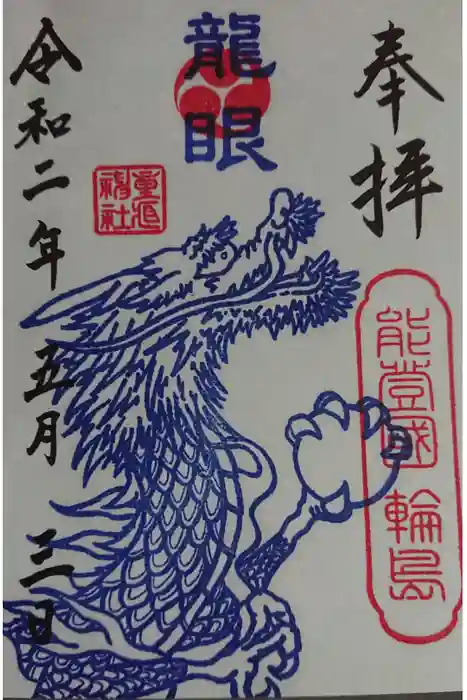 奉拝
能登國 輪島
龍眼
重蔵神社
令和二年五月三日